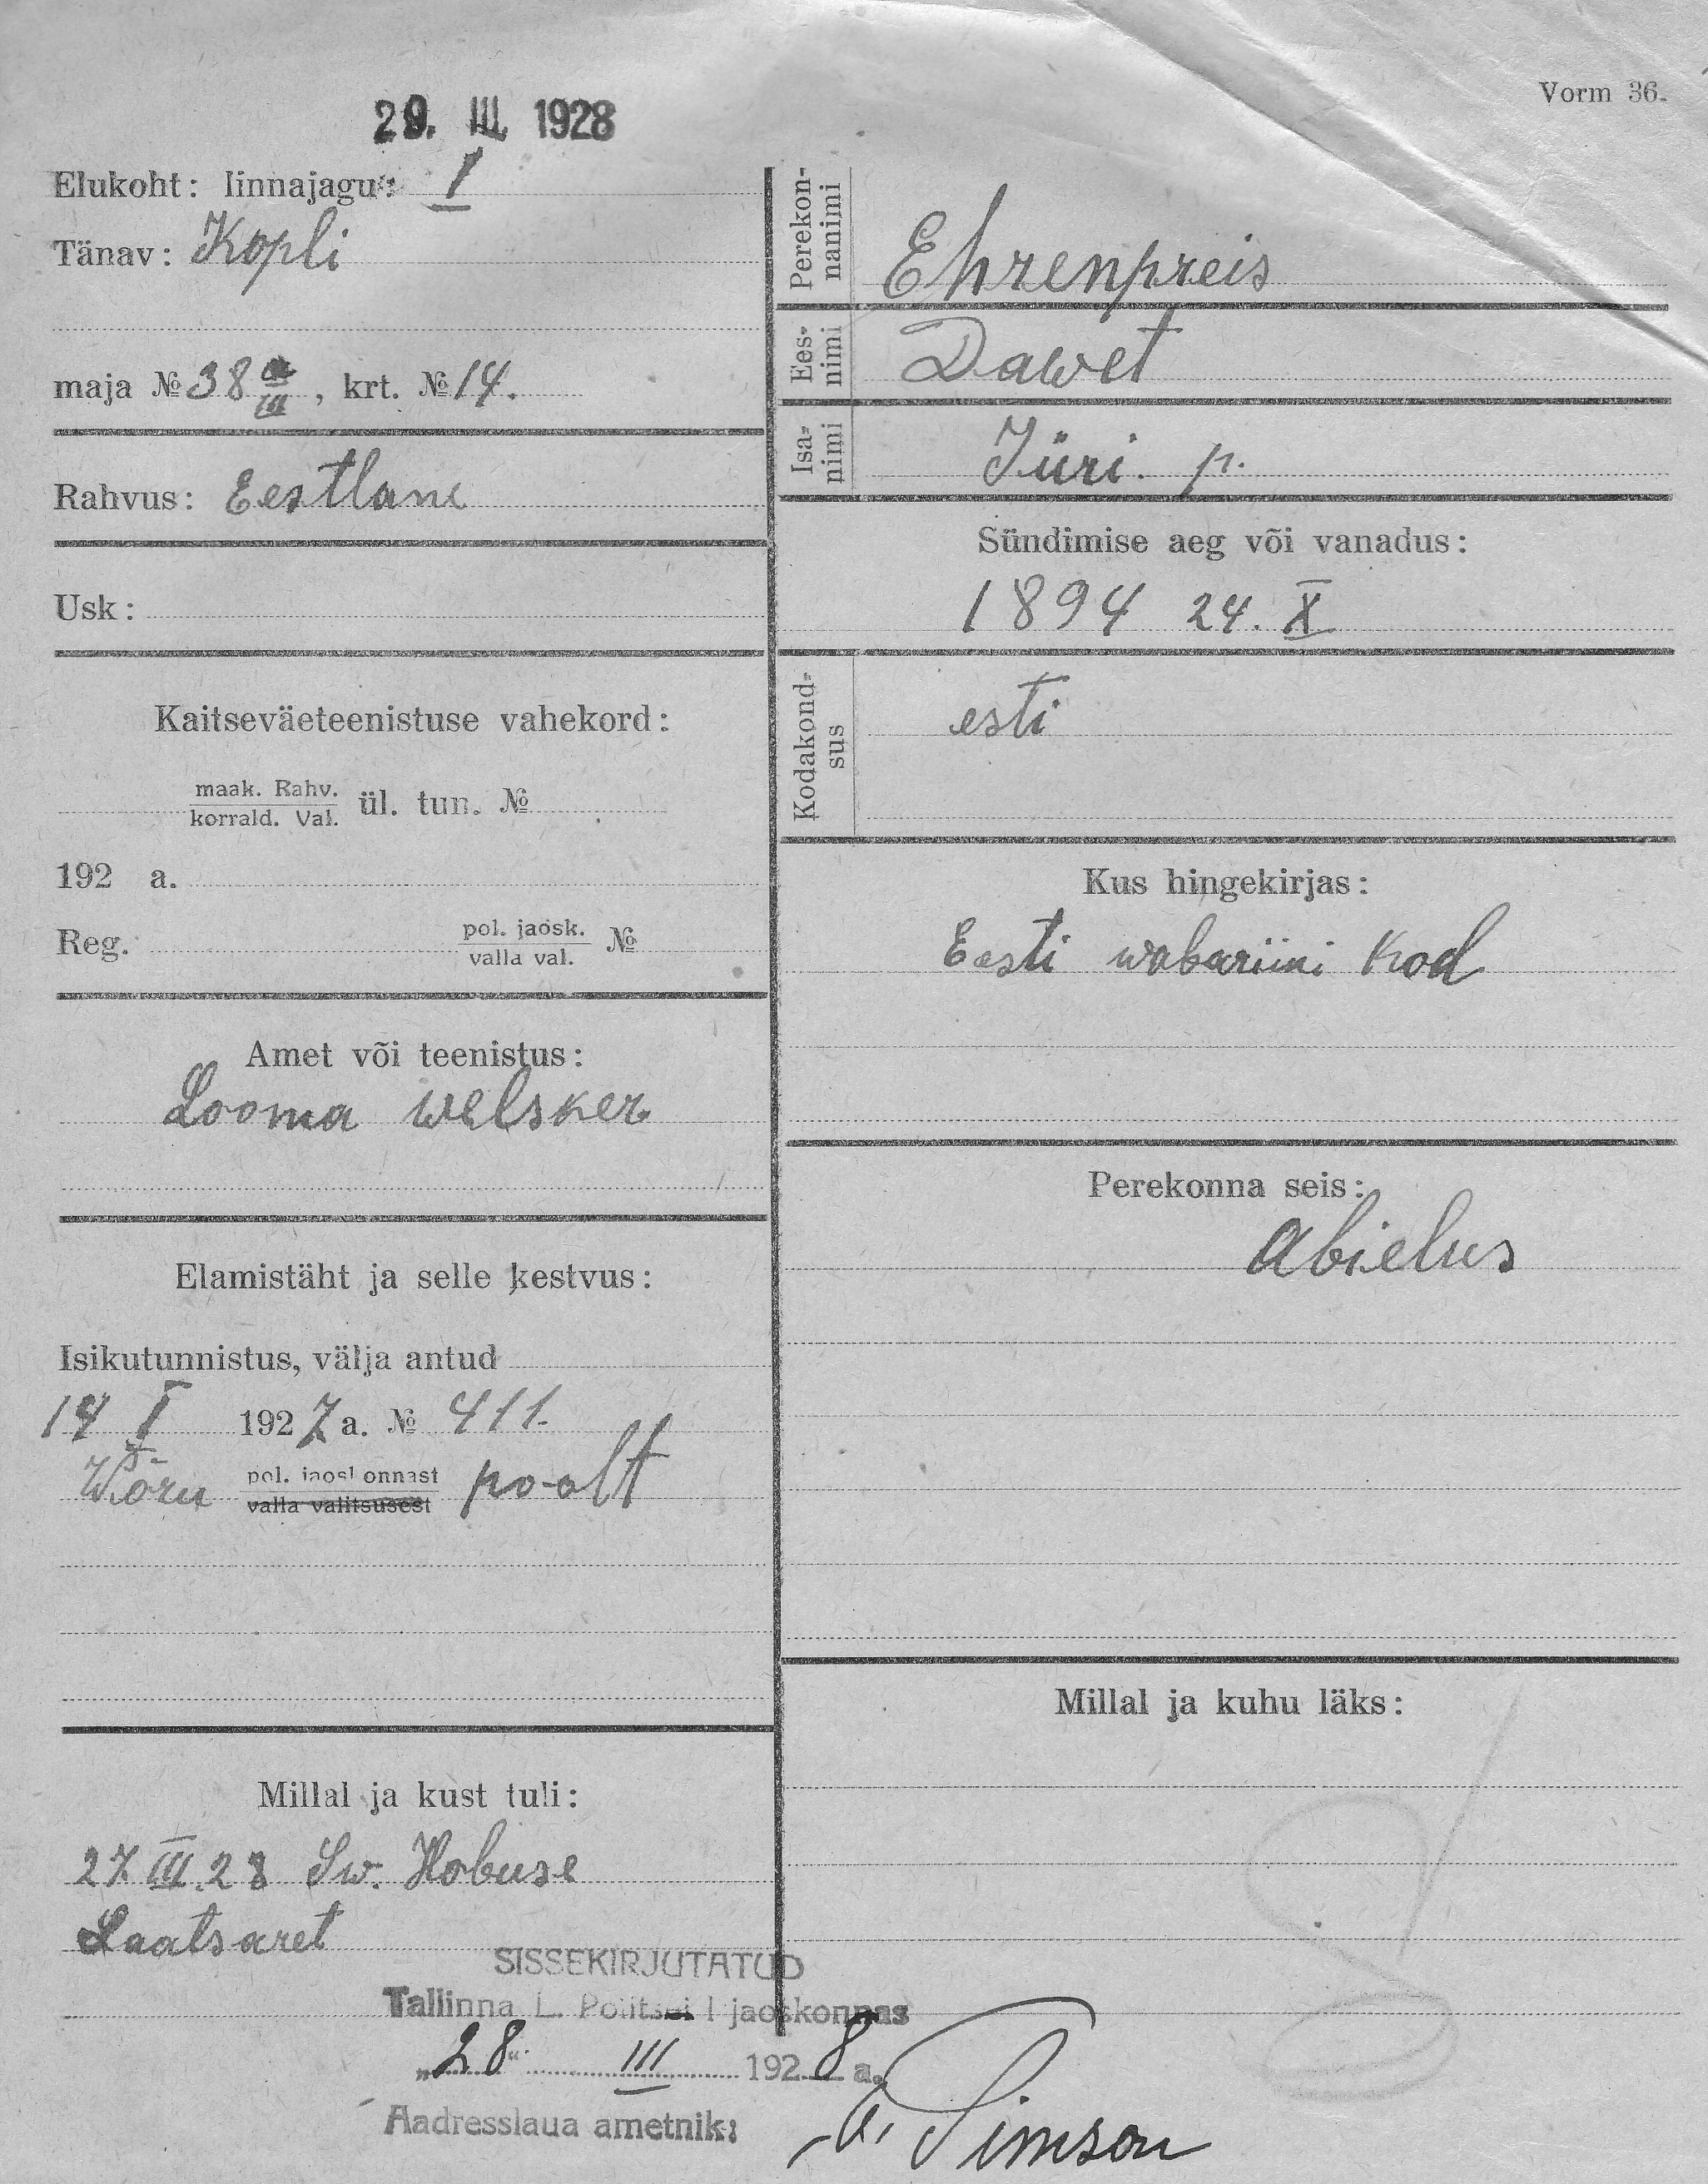 Vorm 36.
29. III 1928
Elukoht: linnajagu: I
Tänav: Kopli
maja № 38 a/III, krt. № 14.
Rahvus: Eestlane
Usk:
Kaitseväeteenistuse vahekord:
maak. Rahv.
korrald. Val. ül. tun. №
192 a.
Reg. pol. jaosk.
valla val. №
Amet või teenistus:
Looma welsker
Elamistäht ja selle kestvus:
Isikutunnistus, välja antud
14 I 1927 a. № 411.
Wõru pol. jaoskonnast poolt
valla valitsusest
Millal ja kust tuli:
27 III.28 Sw. Hobuse
Laatsaret
Perekonnanimi Ehrenpreis
Eesnimi Dawet
Isanimi Jüri. p.
Sündimise aeg või vanadus:
1894 24. X
Kodakondsus esti
Kus hingekirjas:
Eesti wabariini kod
Perekonna seis:
Abielus
Millal ja kuhu läks:
SISSEKIRJUTATUD
Tallinna L. Politsei I jaoskonnas
„28“ III 1928 a.
Aadresslaua ametnik: Simson